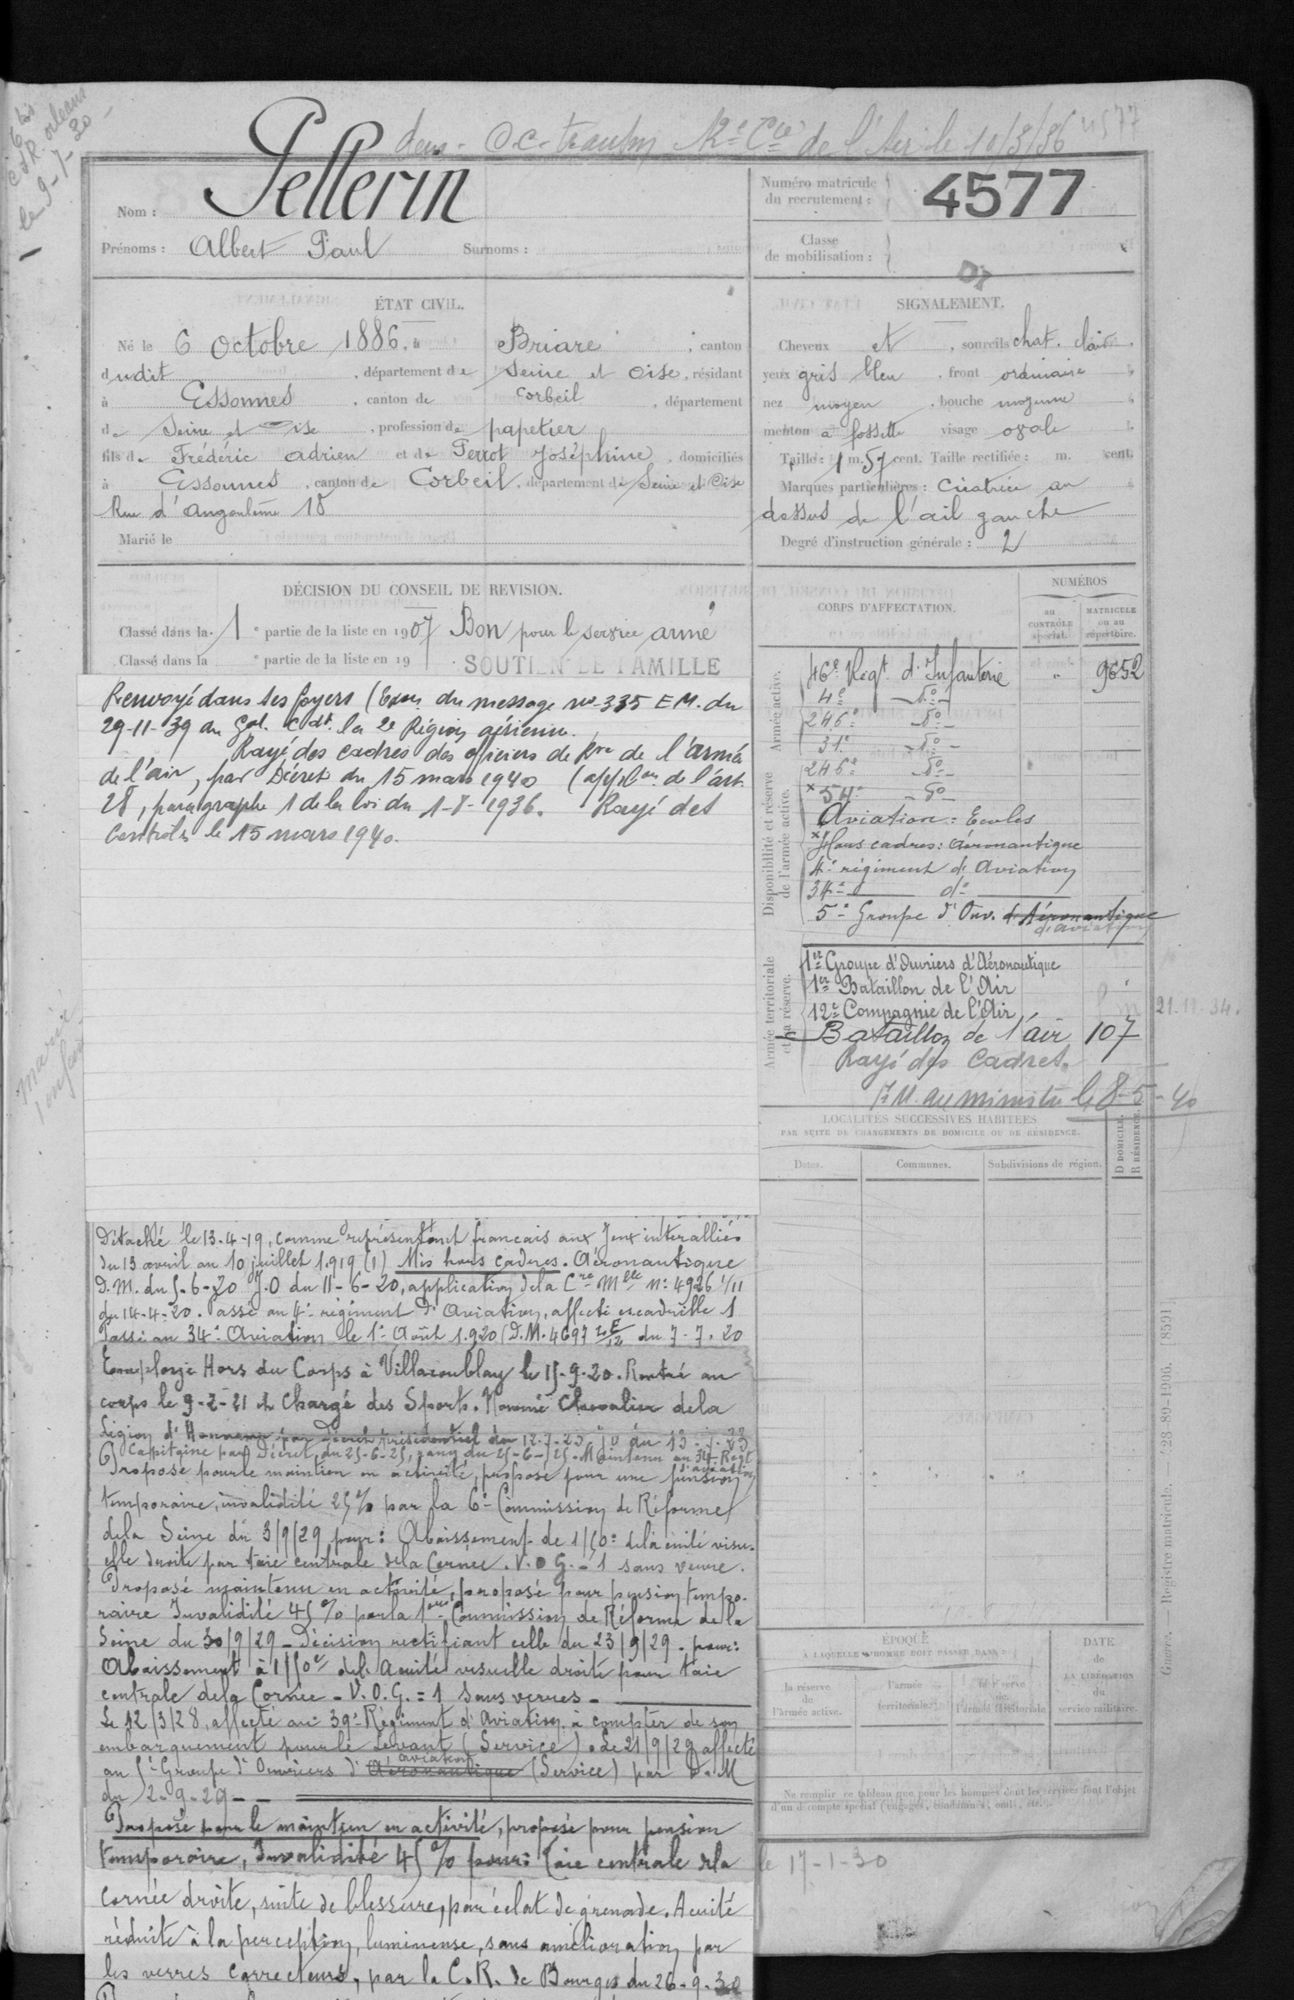 6 bis
C.d.R. Orleans
le 9-7-30
de l'Air le 10/3/36 4577
Nom : Pellerin
Prénoms : Albert Paul Surnoms :
Numéro matricule du recrutement : 4577
Classe de mobilisation :
ÉTAT CIVIL.
Né le 6 Octobre 1886, à Briare, canton
dudit, département de Seine et Oise, résidant
à Essonnes, canton de Corbeil, département
de Seine et Oise, profession de papetier
fils de Frédéric Adrien et de Perrot Joséphine, domiciliés
à Essonnes, canton de Corbeil, département de Seine et Oise
Rue d'Angoulème 18
Marié le
SIGNALEMENT.
Cheveux et, sourcils chat. clair.
yeux gris bleu, front ordinaire
nez moyen, bouche moyenne
menton à fossette visage ovale
Taille : 1 m. 57 cent. Taille rectifiée : m. cent.
Marques particulières : Cicatrice au
dessus de l'œil gauche
Degré d'instruction générale : 2
DÉCISION DU CONSEIL DE REVISION.
Classé dans la 1e partie de la liste en 1907 Bon pour le service armé
Classé dans la e partie de la liste en 19
SOUTIEN DE FAMILLE
Renvoyé dans ses foyers (Exon du message no 335 E M. du
29-11-39 du Gal. Cdt. la 2e Région aérienne.
Rayé des cadres des officiers de Rve de l'armée
de l'air, par Décret du 15 mars 1940 (applon de l'art.
28, paragraphe 1 de la loi du 1-8-1936. Rayé des
Contrôles le 15 mars 1940.
CORPS D'AFFECTATION.
NUMÉROS
au CONTRÔLE spécial.
MATRICULE ou au répertoire.
Armée active.
46e Régt d'Infanterie " 9652
4e do
246e do
31e do
Disponibilité et réserve de l'armée active.
246e do
x 54e do
Aviation : Ecoles
x Hors cadres : Aéronautique
4e régiment d'Aviation
34e do
5e Groupe d'Ouv. d'Aéronautique
d'aviation
Armée territoriale et sa réserve.
1er Groupe d'Ouvriers d'Aéronautique
1er Bataillon de l'Air
12e Compagnie de l'Air 21.11.34.
Bataillon de l'air 107
Rayé des Cadres.
au ministre le 8-5-40
marié
1 enfant
LOCALITÉS SUCCESSIVES HABITÉES
PAR SUITE DE CHANGEMENTS DE DOMICILE OU DE RÉSIDENCE.
Dates.
Communes.
Subdivisions de région.
D DOMICILE.
R RÉSIDENCE.
Détaché le 13-4-19, comme représentant francais aux Jeux interalliés
du 13 avril au 10 juillet 1919 (1) Mis hors cadres. Aéronautique
D.M. du 5-6-20 J.O du 11-6-20, application de la Cre Mlle No 4926 1/11
du 14-4-20. Passé au 4e régiment d'Aviation, affecté escadrille 1
Passé au 34e Aviation le 1er Août 1920 (D.M. 4697 du 7-7-20
Employé Hors du Corps à Villacoublay le 15-9-20. Rentré au
corps le 9-2-21 et Chargé des Sports. Nommé Chevalier de la
Légion d'Honneur par Décret présidentiel du 12-7-23 Jo du 13-7-23
Capitaine par Décret du 25-6-25, rang du 25-6-25. Maintenu au 34e Régt d'aviation
Proposé pour le maintien en activité, proposé pour une pension
temporaire, invalidité 25% par la 6e Commission de Réforme
de la Seine du 3/9/29 pour : Abaissement de 1/50e de la cuité visu-
elle droite par taie centrale de la Cornée. V. O G. = 1 sans verre.
Proposé maintenu en activité, proposé pour pension tempo-
raire Invalidité 45% par la 1ère Commission de Réforme de la
Seine du 30/9/29 – Décision rectifiant celle du 23/9/29. pour :
Abaissement à 1/50e de l'Acuité visuelle droite pour taie
centrale de la Cornée – V. O. G. = 1 sans verres –
Le 12/3/28, affecté au 39e Régiment d'Aviation à compter de son
embarquement pour le Levant (Service). Le 21/9/29 affecté
au 5e Groupe d'Ouvriers d'Aéronautique aviation (Service) par D. M
du 2-9-29 –
Proposé pour le maintien en activité, proposé pour pension
temporaire, Invalidité 45% pour : Taie centrale de la le 17-1-30
Cornée droite, suite de blessure, par éclat de grenade. Acuité
réduite à la perception lumineuse, sans amélioration par
les verres correcteurs, par la C.R. de Bourges du 26-9-30
ÉPOQUE
À LAQUELLE L'HOMME DOIT PASSER DANS :
la réserve de l'armée active.
l'armée territoriale.
la réserve de l'armée territoriale.
DATE de LA LIBÉRATION du service militaire.
Ne remplir ce tableau que pour les hommes dont les services font l'objet
d'un décompte spécial (engagés, condamnés, omis, etc.)
Guerre. Registre matricule. 728-89-1906. [8591]